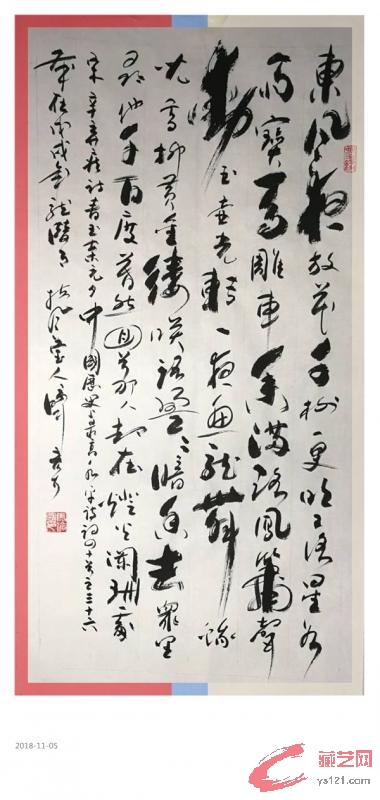 東風夜放花千树更吹落星如
雨寶馬雕車香满路鳳簫聲
動玉壶光轉一夜鱼龍舞蛾
兒雪柳黄金缕笑語盈盈暗香去眾里
尋他千百度蓦然回首那人却在燈火阑珊處
宋辛弃疾詞青玉案元夕中國歷史上最高水平诗词四十首之三十六
戊戌年
2018-11-05
藏艺网
ys121.com